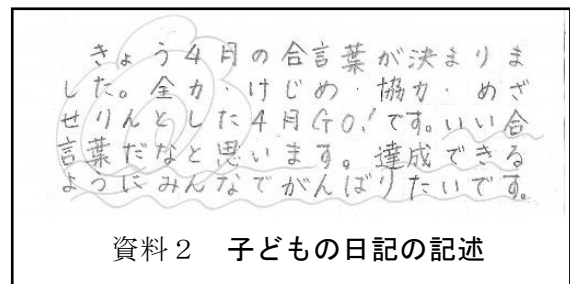 きょう4月の合言葉が決まりま
した。全力・けじめ・協力・めざ
せりんとした4月GO!です。いい合
言葉だなと思います。達成できる
ようにみんなでがんばりたいです。
資料2 子どもの日記の記述